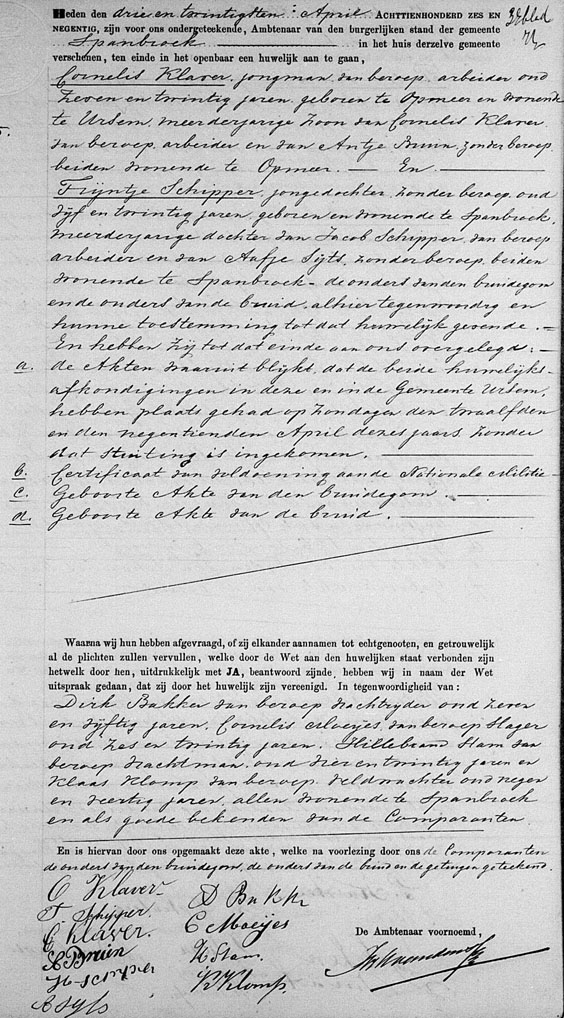 Heden den drie en twintigsten April ACHTTIENHONDERD ZES EN
NEGENTIG, zijn voor ons ondergeteekende, Ambtenaar van den burgerlijken stand der gemeente
Spanbroek in het huis derzelve gemeente
verschenen, ten einde in het openbaar een huwelijk aan te gaan,
Cornelis Klaver, jongman, van beroep arbeider oud
zeven en twintig jaren, geboren te Opmeer en wonende
te Ursem, meerderjarige zoon van Cornelis Klaver
van beroep arbeider en van Antje Bruin, zonder beroep,
beiden wonende te Opmeer. — En
Trijntje Schipper, jongedochter, zonder beroep, oud
vijf en twintig jaren, geboren en wonende te Spanbroek,
meerderjarige dochter van Jacob Schipper, van beroep
arbeider en van Aafje Sijts, zonder beroep, beiden
wonende te Spanbroek - de ouders van den bruidegom
en de ouders van de bruid, alhier tegenwoordig en
hunne toestemming tot dat huwelijk gevende. —
En hebben zij tot dat einde aan ons overgelegd: —
a. de Akten waaruit blijkt, dat de beide huwelijks-
afkondigingen in deze en in de Gemeente Ursem,
hebben plaats gehad op Zondagen den twaalfden
en den negentienden April dezes jaars, zonder
dat stuiting is ingekomen.
b. Certificaat van voldoening aan de Nationale Militie
c. Geboorte Akte van den bruidegom.
d. Geboorte Akte van de bruid.
Waarna wij hun hebben afgevraagd, of zij elkander aannamen tot echtgenooten, en getrouwelijk
al de plichten zullen vervullen, welke door de Wet aan den huwelijken staat verbonden zijn
hetwelk door hen, uitdrukkelijk met JA, beantwoord zijnde, hebben wij in naam der Wet
uitspraak gedaan, dat zij door het huwelijk zijn vereenigd. In tegenwoordigheid van:
Dirk Bakker van beroep Vrachtrijder oud zeven
en vijftig jaren, Cornelis Moeijes, van beroep Slager
oud zes en twintig jaren, Hillebrand Stam van
beroep Vrachtman, oud vier en twintig jaren en
Klaas Klomp van beroep Veldwachter oud negen
en veertig jaren, allen wonende te Spanbroek
en als goede bekenden van de Comparanten.
En is hiervan door ons opgemaakt deze akte, welke na voorlezing door ons de Comparanten
de ouders van den bruidegom, de ouders van de bruid en de getuigen geteekend.
C Klaver D Bakker
T. Schipper.
C Klaver. C Moeijes
A Bruin De Ambtenaar voornoemd,
schipper H Stam.
A Syts K Klomp.